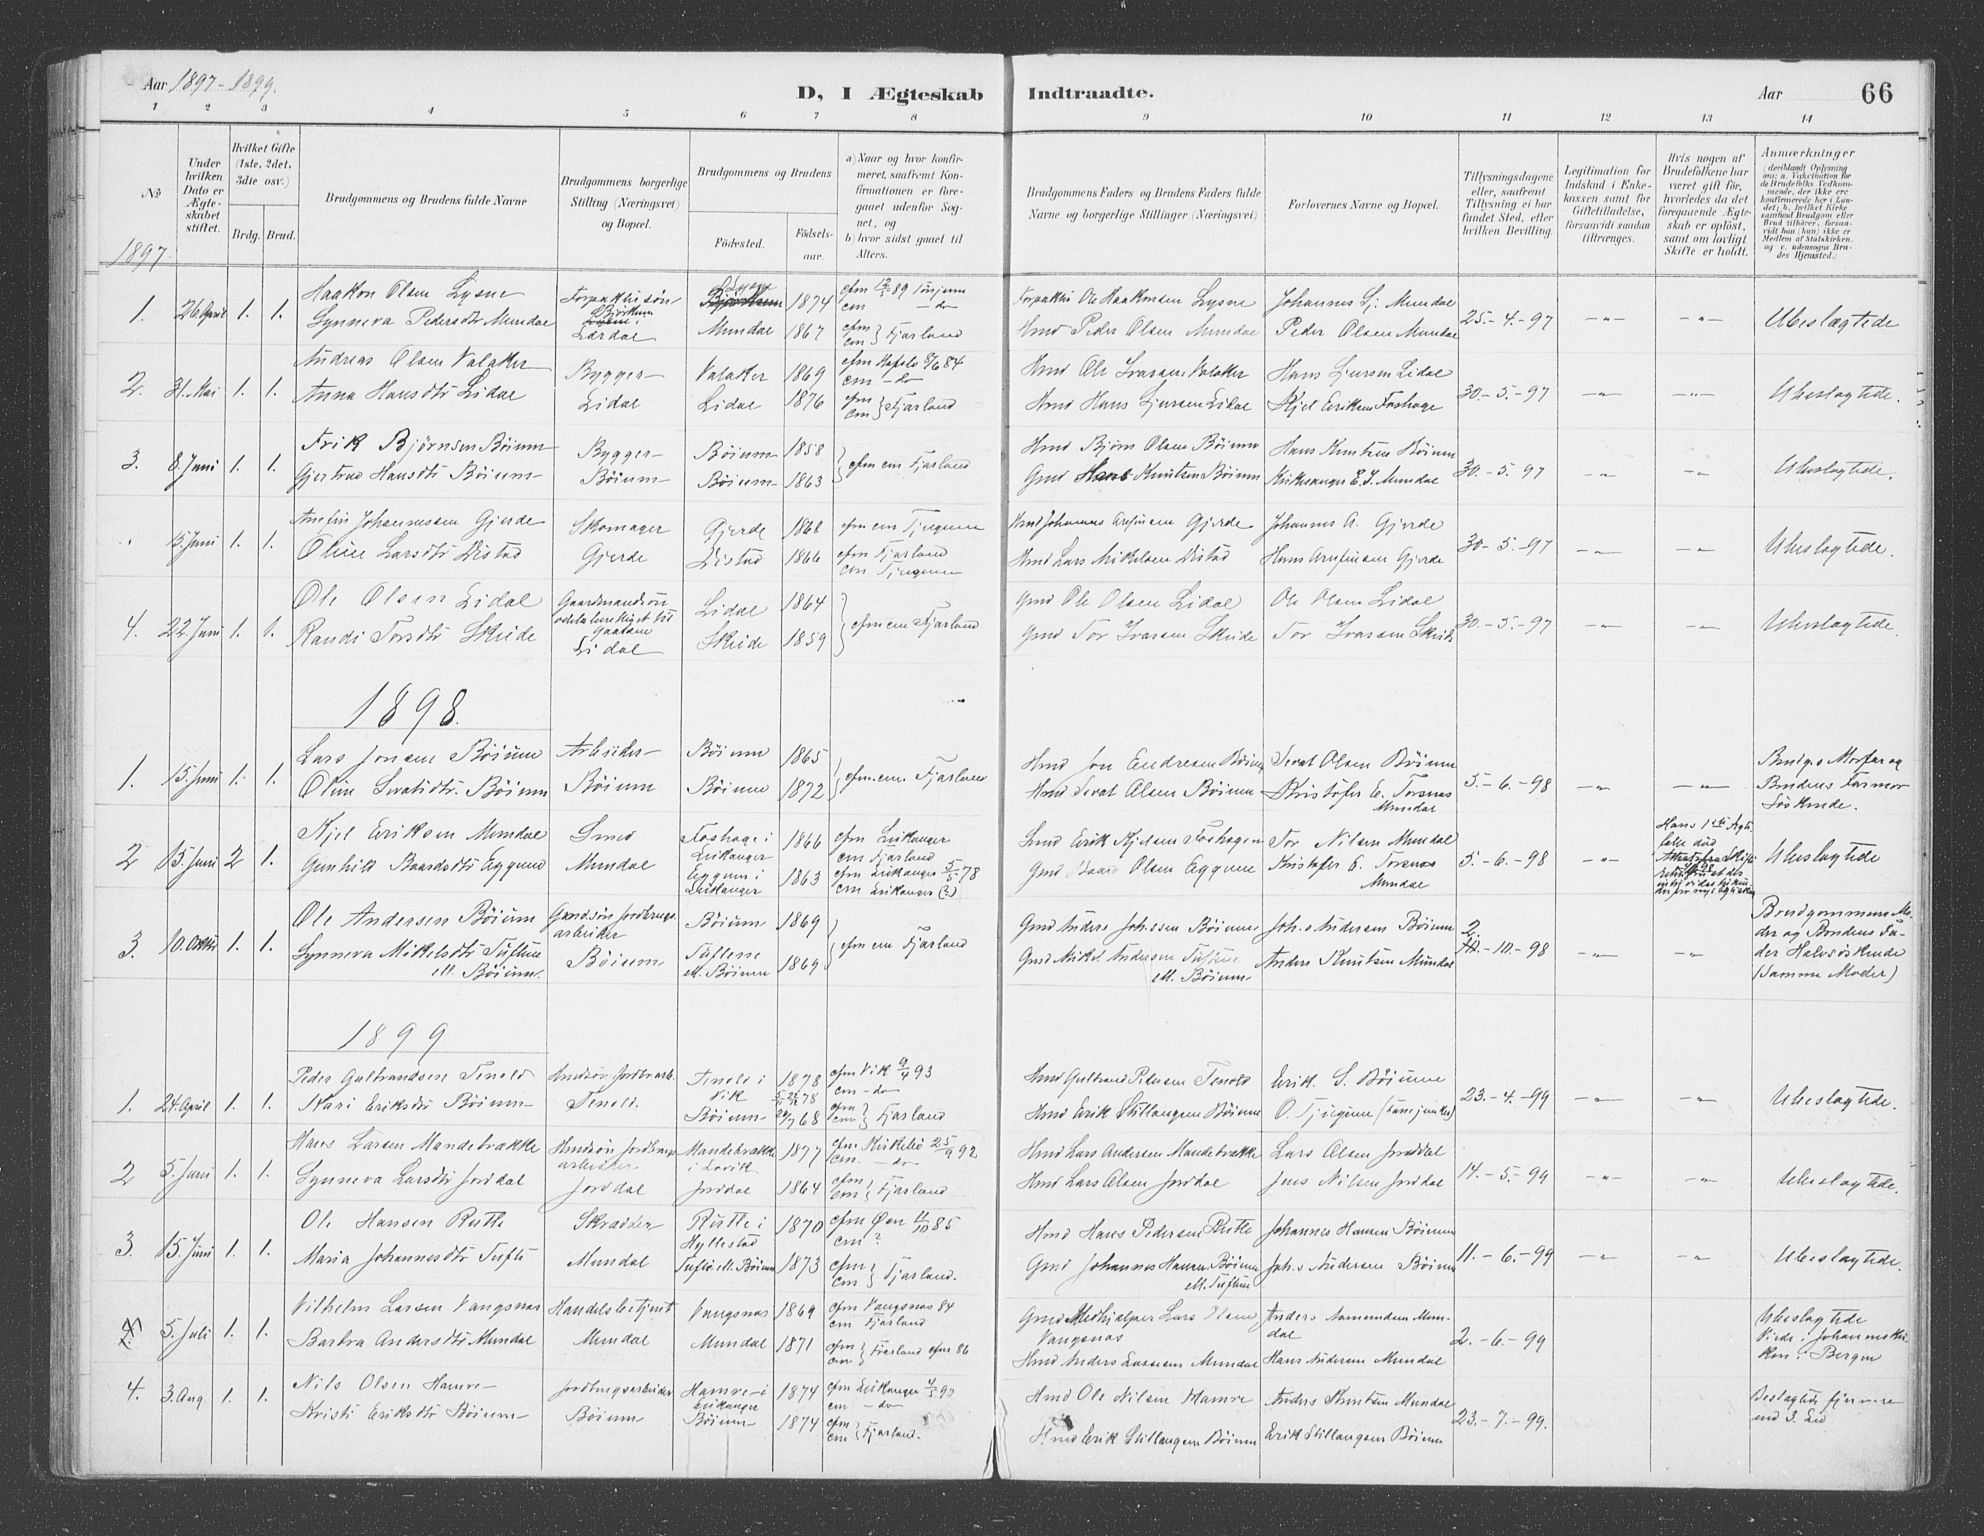 Aar 1897-1899.
D, I Ægteskab Indtraadte.
Aar 66
1 2 3 4 5 6 7 8 9 10 11 12 13 14
No
Under hvilken Dato er Ægteskabet stiftet.
Hvilket Gifte (1ste, 2det, 3die osv.)
Brdg. Brud.
Brudgommens og Brudens fulde Navne
Brudgommens borgerlige Stilling (Næringsvei) og Bopæl.
Brudgommens og Brudens
Födested. Födsels-aar.
a) Naar og hvor konfirmeret, saafremt Konfirmationen er foregaaet udenfor Sognet, og
b) hvor sidst gaaet til Alters.
Brudgommens Faders og Brudens Faders fulde Navne og borgerlige Stillinger (Næringsvei)
Forlovernes Navne og Bopæl.
Tillysningsdagene eller, saafremt Tillysning ei har fundet Sted, efter hvilken Bevilling.
Legitimation for Indskud i Enkekassen samt for Giftetilladelse, forsaavidt saadan tiltrænges.
Hvis nogen af Brudefolkene har været gift før, hvorledes da det foregaaende Ægteskab er oplöst, samt om lovligt Skifte er holdt.
Anmærkninger
(deriblandt Oplysning om: a. Vakcination for de Brudefolks Vedkommende, der ikke ere konfirmerede her i Landet; b. hvilket Kirkesamfund Brudgom eller Brud tilhører, forsaavidt han (hun) ikke er Medlem af Statskirken. og c. udensogns Brudes Hjemsted.)
1897.
1. 26 April 1. 1. Haakon Olsen Lysne Forpakters søn Lysne 1874 cfm 89 cm - do Forpakter Ole Haakonsen Lysne Johannes Mundal 25.-4.-97 -"- -"- Ubeslægtede
Synneva Pedersdtr Mundal Lærdal Mundal 1867 cfm cm } Fjærland Hmd Peder Olsen Mundal Peder Olsen Mundal
2. 31. Mai 1. 1. Andreas Olsen Valaker Bygger- Valaker 1869 cfm Hafslo 8/6 84 cm - do Hmd Ole Ivarsen Valaker Hans Ljursen Lidal 30.-5.-97 -"- -"- Ubeslægtede.
Anna Hansdtr Lidal Lidal Lidal 1876 cfm cm } Fjærland Hmd Hans Ljursen Lidal Kjel Eriksen Foshage
3. 8. Juni 1. 1. Erik Bjørnsen Bøium Bygger- Bøium 1858 } cfm cm Fjærland Hmd Bjørn Olsen Bøium Hans Knutsen Bøium 30.-5.-97 -"- -"- Ubeslægtede.
Gjertrud Hansdtr Bøium- Bøium- Bøium- 1863 Gmd Hans Knutsen Bøium Kirkesanger E. J. Mundal
15. Juni 1. 1. Arnfin Johannessen Gjerde Skomager Gjerde 1868 cfm cm Tjugum Hmd Johannes Arnfinsen Gjerde Johannes A. Gjerde 30-5.-97 -"- -"- Ubeslægtede.
Oline Larsdtr Distad Gjerde Distad 1866 cfm Fjærland cm Tjugum Hmd Lars Mikelsen Distad Hans Arnfinsen Gjerde
4. 22. Juni 1. 1. Ole Olsen Lidal Gaardmandsøn Lidal 1864 } cfm cm Fjærland Gmd Ole Olsen Lidal Ole Olsen Lidal 30-5.-97 -"- -"- Ubeslægtede.
Randi Torsdtr Skeide Lidal Skeide 1859 Gmd Tor Ivarsen Skeide Tor Ivarsen Skeide
1898.
1. 15. Juni 1. 1. Lars Jonsen Bøium Arbeider- Bøium 1865 } cfm. cm. Fjærland Hmd Jon Endresen Bøium Sivat Olsen Bøium 5.-6.-98 -"- -"- Brudg.s Morfar og
Oline Sivatsdtr. Bøium Bøium Bøium 1872 Hmd Sivat Olsen Bøium Kristofer E. Torsnes Mundal Brudens Farmor Søskende.
2 15. Juni 2 1. Kjel Eriksen Mundal Smed Foshage i Leikanger 1866 cfm Leikanger cm Fjærland Smd Erik Kjelsen Foshagen Tor Nilsen Mundal 5-6-98 -"- Hans 1ste Ægtefælle død Ubeslægtede
Gunhild Baardsdtr Eggum Mundal Eggum i Leikanger 1863 cfm Leikanger 5/5 78 cm Leikanger (?) Gmd Baard Olsen Eggum Kristofer E. Torsnes Mundal
3. 10. Oktbr 1. 1. Ole Andersen Bøium Gmdsøn Jordbrugsarbeider Bøium- 1869 } cfm cm Fjærland Gmd Anders Johssen Bøium Joh.s Andersen Bøium 2-10-98 -"- -"- Brudgommens Moder og Brudens Fader Halvsøskende (samme Moder)
Synneva Mikelsdtr Tuftene ell. Bøium. Bøium Tuftene ell. Bøium 1869 Gmd Mikel Andersen Tuftene ell. Bøium Anders Knutsen Mundal
1899
1. 24. April 1. 1. Peder Gulbrandsen Tenold Hmdsøn Jordbr.arb. Tenold i Vik 1878 cfm Vik 9/4 93 cm - do Hmd Gulbrand Pedersen Tenold Erik S. Bøium 23.-4.-99 -"- -"- Ubeslægtede.
Kari Eriksdtr Bøium- Tenold. Bøium- 68 cfm cm } Fjærland Hmd Erik Stillaugsen Bøium O. Tjugum
2 5. Juni 1. 1. Hans Larsen Mandebrække Hmdsøn Jordbrugsarbeider Mandebrække i Lavik 1877 cfm Kirkebø 25/9 92 cm. - do Hmd Lars Andersen Mandebrække Lars Olsen Jorddal 14.-5.-99 -"- -"- Ubeslægtede.
Synneva Larsdtr Jordal Jorddal Jordal 1864 cfm cm } Fjærland Hmd Lars Olsen Jordal Jens Nilsen Jordal
3. 15. Juni 1. 1. Ole Hansen Rutle Skrædder Rutle i Hyllestad 1870 cfm Øen 11/10 85 cm ? Hmd Hans Pedersen Rutle Johannes Hansen Bøium 11.-6.-99 -"- -"- Ubeslægtede.
Maria Johannesdtr Tufte Mundal Tufte ell. Bøium 1873 cfm cm } Fjærland. Gmd Johannes Hansen Bøium ell. Tuftene Joh.s Andersen Bøium
5. Juli 1. 1. Vilhelm Larsen Vangsnæs Handelsbetjent Vangsnæs 1869 cfm Vangsnæs 84 cm Fjærland Gmd Medhjælper Lars Olsen Vangsnæs Anders Mundal 2.-6.-99 Ubeslægtede Viede i Johanneskirken i Bergen
Barbra Andersdtr Mundal Mundal Mundal 1871 cfm cm } Fjærland cfm 86 Hmd Anders Larssen Mundal Hans Andersen Mundal
4. 3. Aug. 1. 1. Nils Olsen Hamre- Jordbrugsarbeider Hamre i Leikanger 1874 cfm Leikanger 90 cm - do Hmd Ole Nilsen Hamre Anders Knutsen Mundal 23.-7.-99. Beslægtede fjernere end 3. Led
Kristi Eriksdtr Bøium- Bøium Bøium- 1874 cfm cm } Fjærland. Hmd Erik Stillaugsen Bøium Erik Stillaugsen Bøium